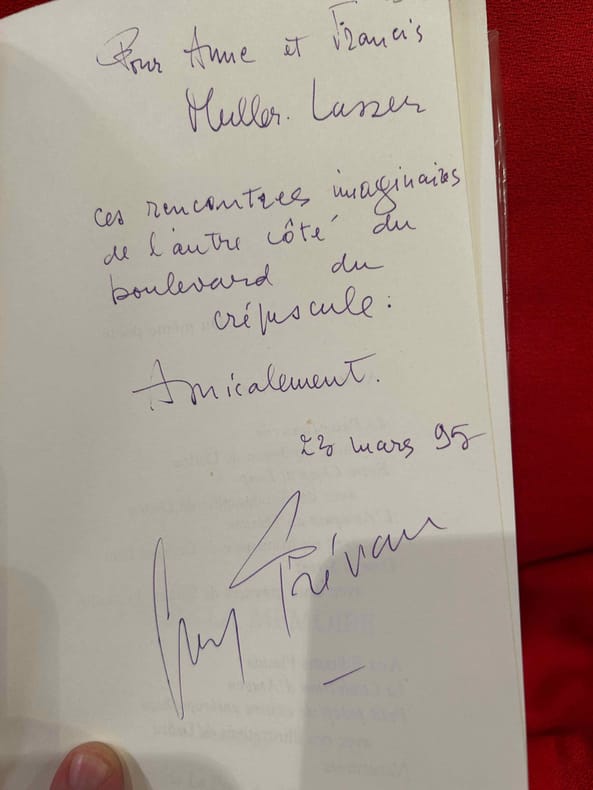 Pour Anne et Francis
Muller. Lasser
ces rencontres imaginaires
de l'autre côté du
boulevard du
crépuscule.
Amicalement.
23 mars 95
Guy Prévan